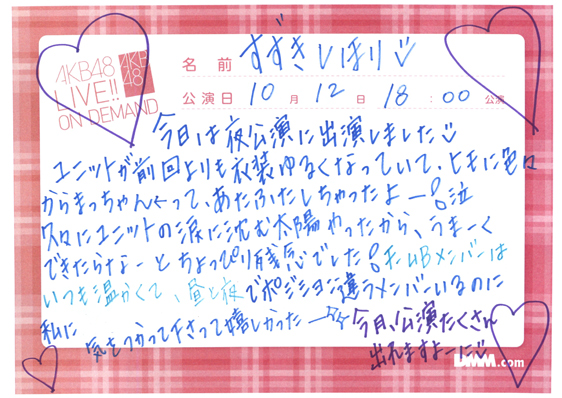 AKB48
LIVE!!
ON DEMAND
AKB
48
名前 すずきしほり
公演日 10月12日 18:00公演
今日は夜公演に出演しました
ユニットが前回よりも衣装ゆるくなっていて、ともに色々
からまっちゃって、あたふたしちゃったよー泣
久々にユニットの涙に沈む太陽やったから、うまーく
できたらなーとちょっぴり残念でした! チームBメンバーは
いつも温かくて、昼と夜でポジション違うメンバーいるのに
私に気をつかって下さって嬉しかったー
今月、公演たくさん
出れますよーに
DMM.com